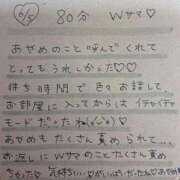 10/5 80分 Wサマ♡
あやめのこと呼んでくれて
とってもうれしかった♡♡
待ち時間で色々お話して
お部屋に入ってからは イチャイチャ
モードだったね(⸝⸝⸝)♡
あやめもたくさん責められて...
お返しにWサマのことたくさん責め
ちゃった♡ 気持ちい